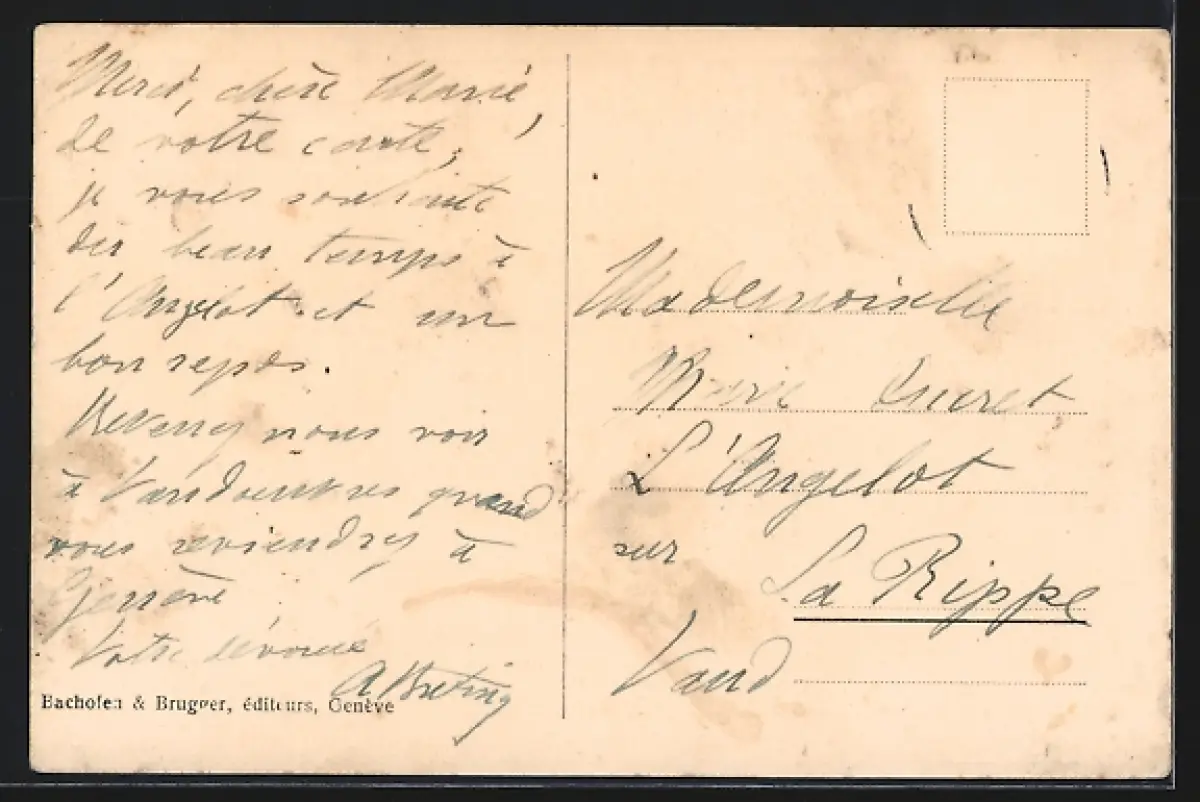 Merci, chère Marie,
de votre carte,
je vous souhaite
du beau temps à
l'Angelot et un
bon repos.
Revenez nous voir
à Vandœuvres quand
vous reviendrez à
Genève
Votre dévoué
A
Bachofen & Brugger, éditeurs, Genève
Mademoiselle
Marie Ducret
L'Angelot
sur
La Rippe
Vaud